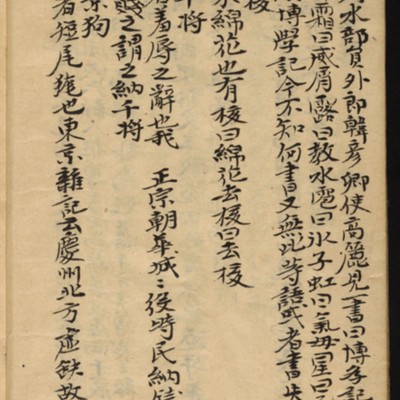 水部貟外郎韓彦卿使高麗見一書曰博孝記
霜曰威屑露曰教水雹曰氷子虹曰氣母星曰
博學記今不知何書又無此等語或者書失
核
綿花也有核曰綿花去核曰去核
千将
羞辱之辭也我 正宗朝華城〻役時民納錢
賤之謂之納千将
狗
者短尾狵也東京雜記云慶州北方虛缺故